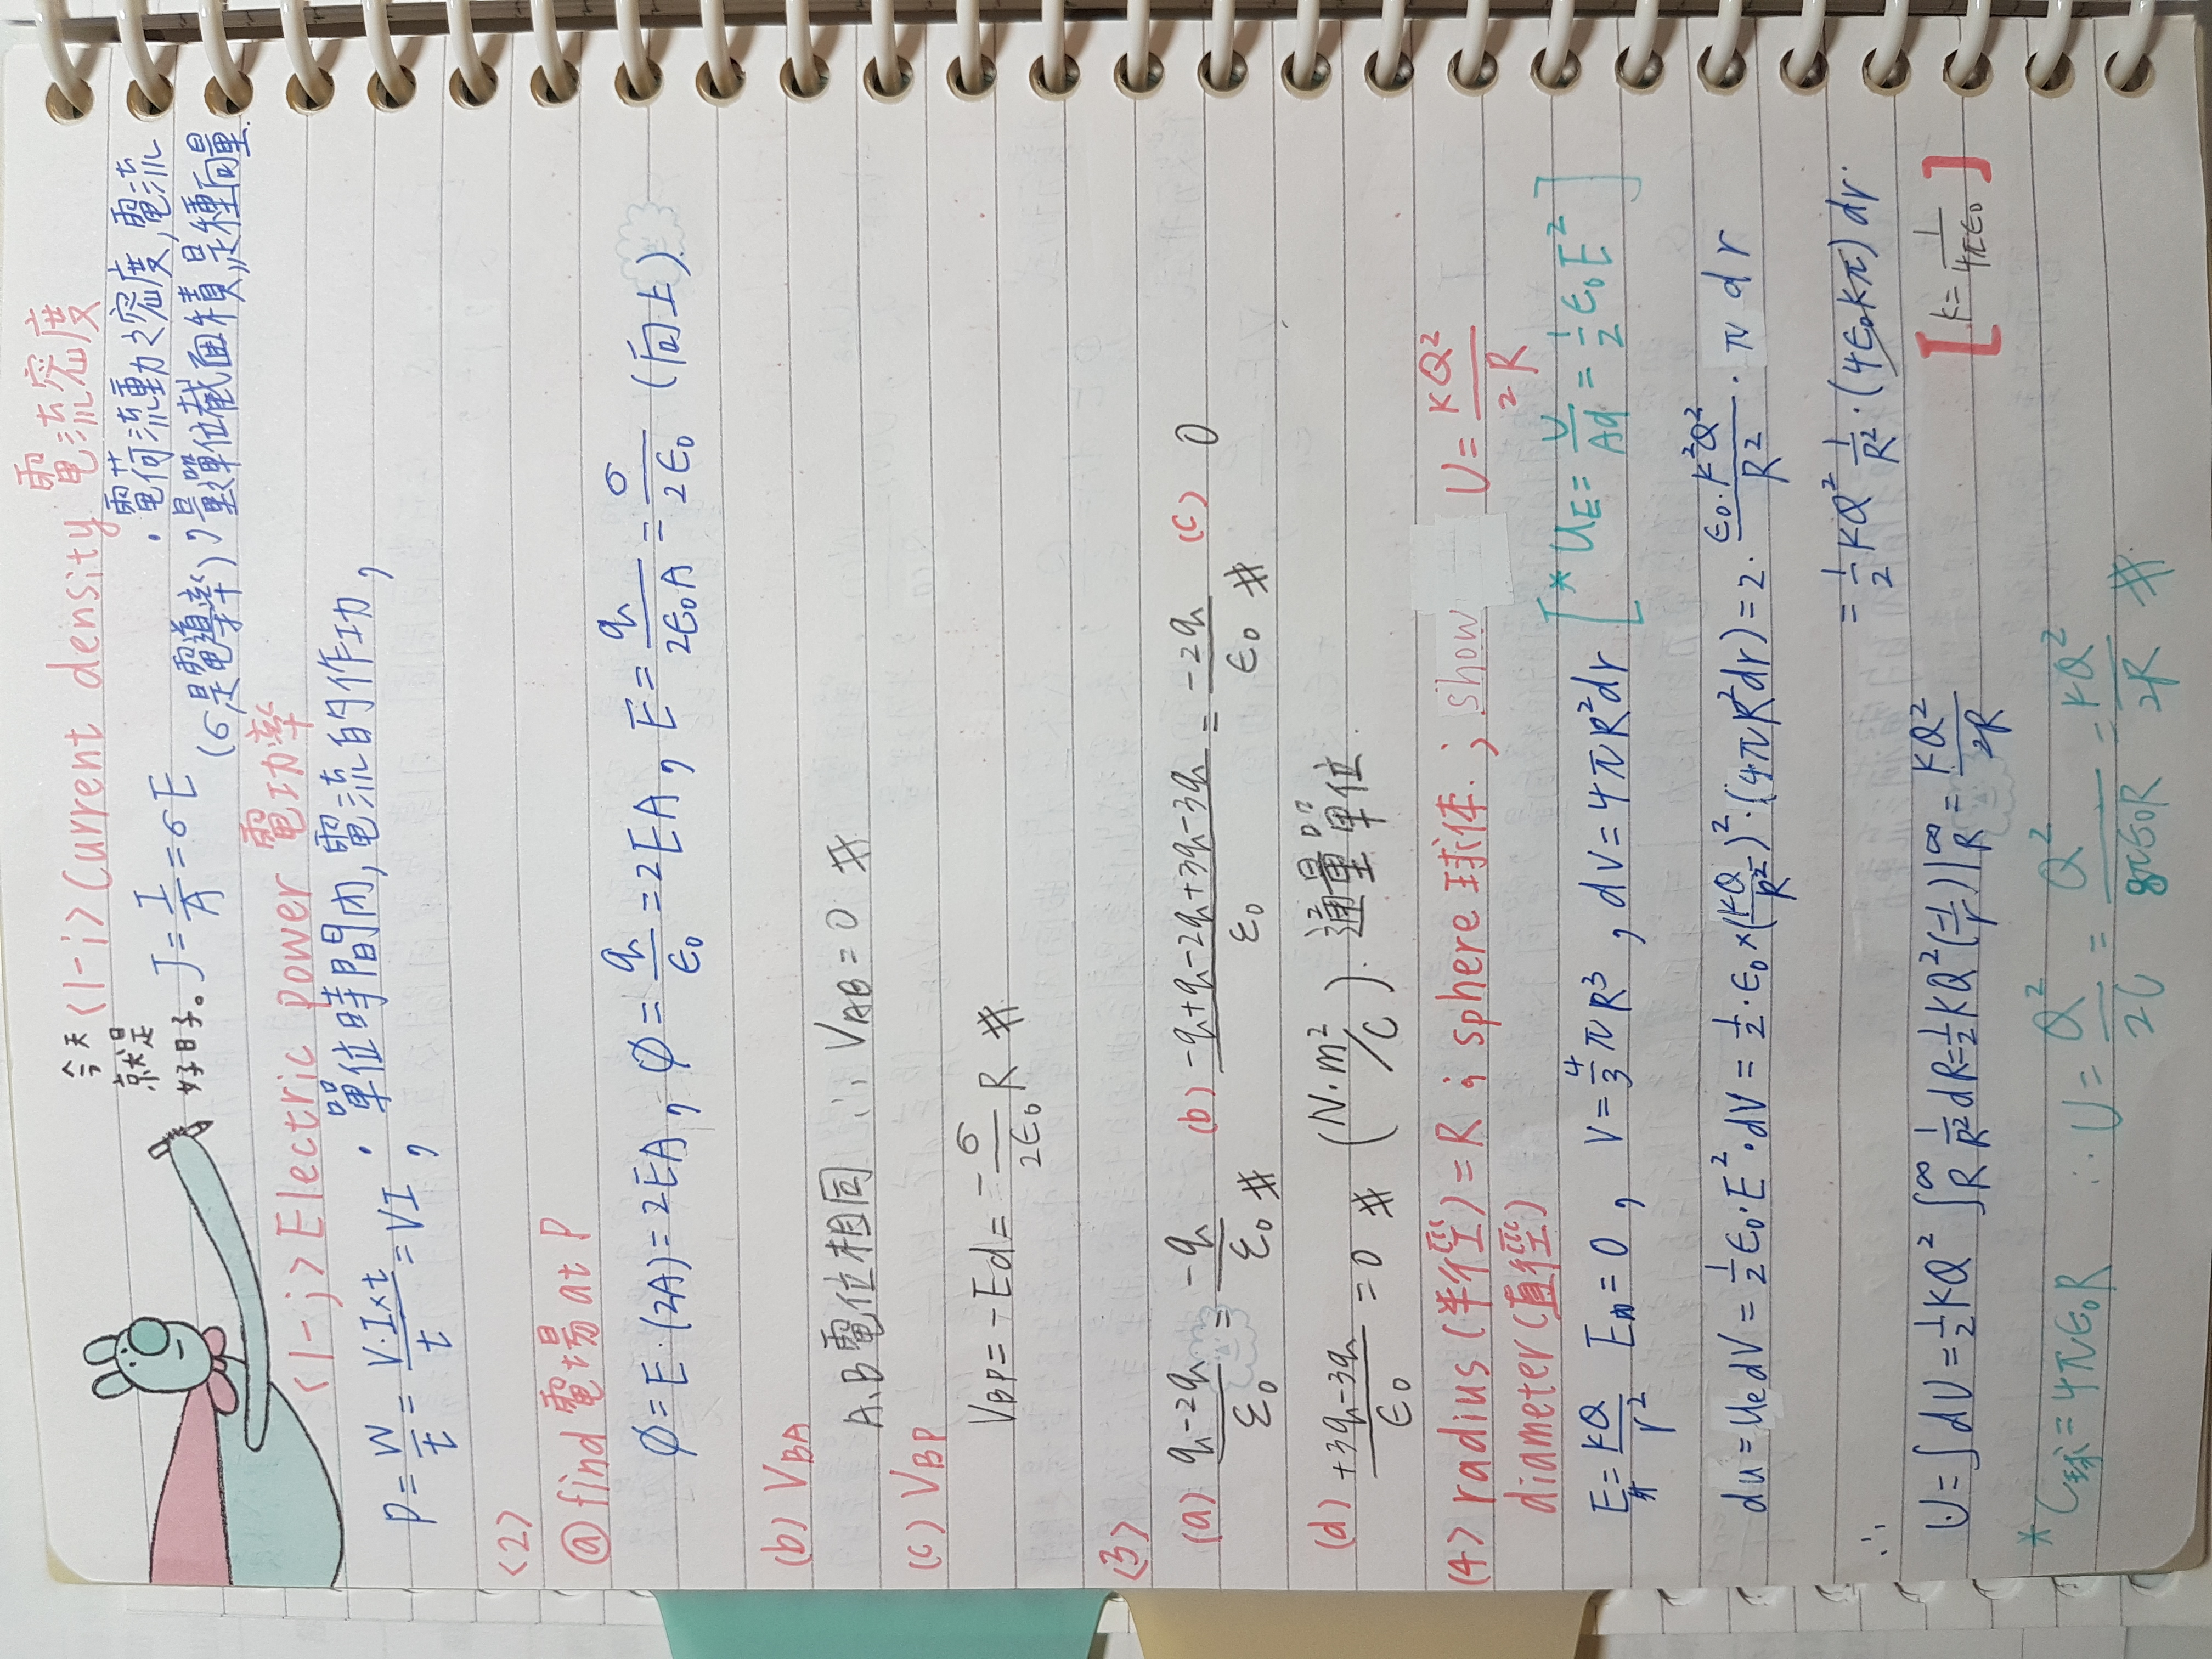 今天
就是
好日子。
<1-i> Current density 電流密度
J = I/A = σE
(σ是電導率) ; 電荷流動之密度,電流
量單位截面積,是種向量.
<1-j> Electric power 電功率
P = W/t = V·I×t/t = VI ; 單位時間內,電流的作功,
<2>
ⓐ find 電場 at P
∅ = E·(2A) = 2EA , ∅ = q/ε₀ = 2EA , E = q/2ε₀A = σ/2ε₀ (向上).
(b) V_BA
A、B電位相同 ∴ V_AB = 0 #
(c) V_BP
V_BP = -Ed = -σ/2ε₀ R #
<3>
(a) q-2q/ε₀ = -q/ε₀ # (b) -q+q-2q+3q-3q/ε₀ = -2q/ε₀ # (c) 0
(d) +3q-3q/ε₀ = 0 # (N·m²/C). 通量單位.
<4> radius (半徑) = R ; sphere 球体. ; show U = KQ²/2R
diameter (直徑)
E外 = KQ/r² E内 = 0 , V = 4/3 πR³ , dV = 4πR²dr [* U_E = U/Ad = 1/2 ε₀E²]
du = u_e dV = 1/2 ε₀·E²·dV = 1/2·ε₀×(KQ/R²)²·(4πR²dr) = 2·ε₀·K²Q²/R²·π dr
= 1/2 KQ² 1/R²·(4ε₀Kπ) dr.
∴
U = ∫dU = 1/2 KQ² ∫_R^∞ 1/R² dR = 1/2 KQ² (-1/r)|_R^∞ = KQ²/2R [K = 1/4πε₀]
* C球 = 4πε₀R ∴ U = Q²/2C = Q²/8πε₀R = KQ²/2R #